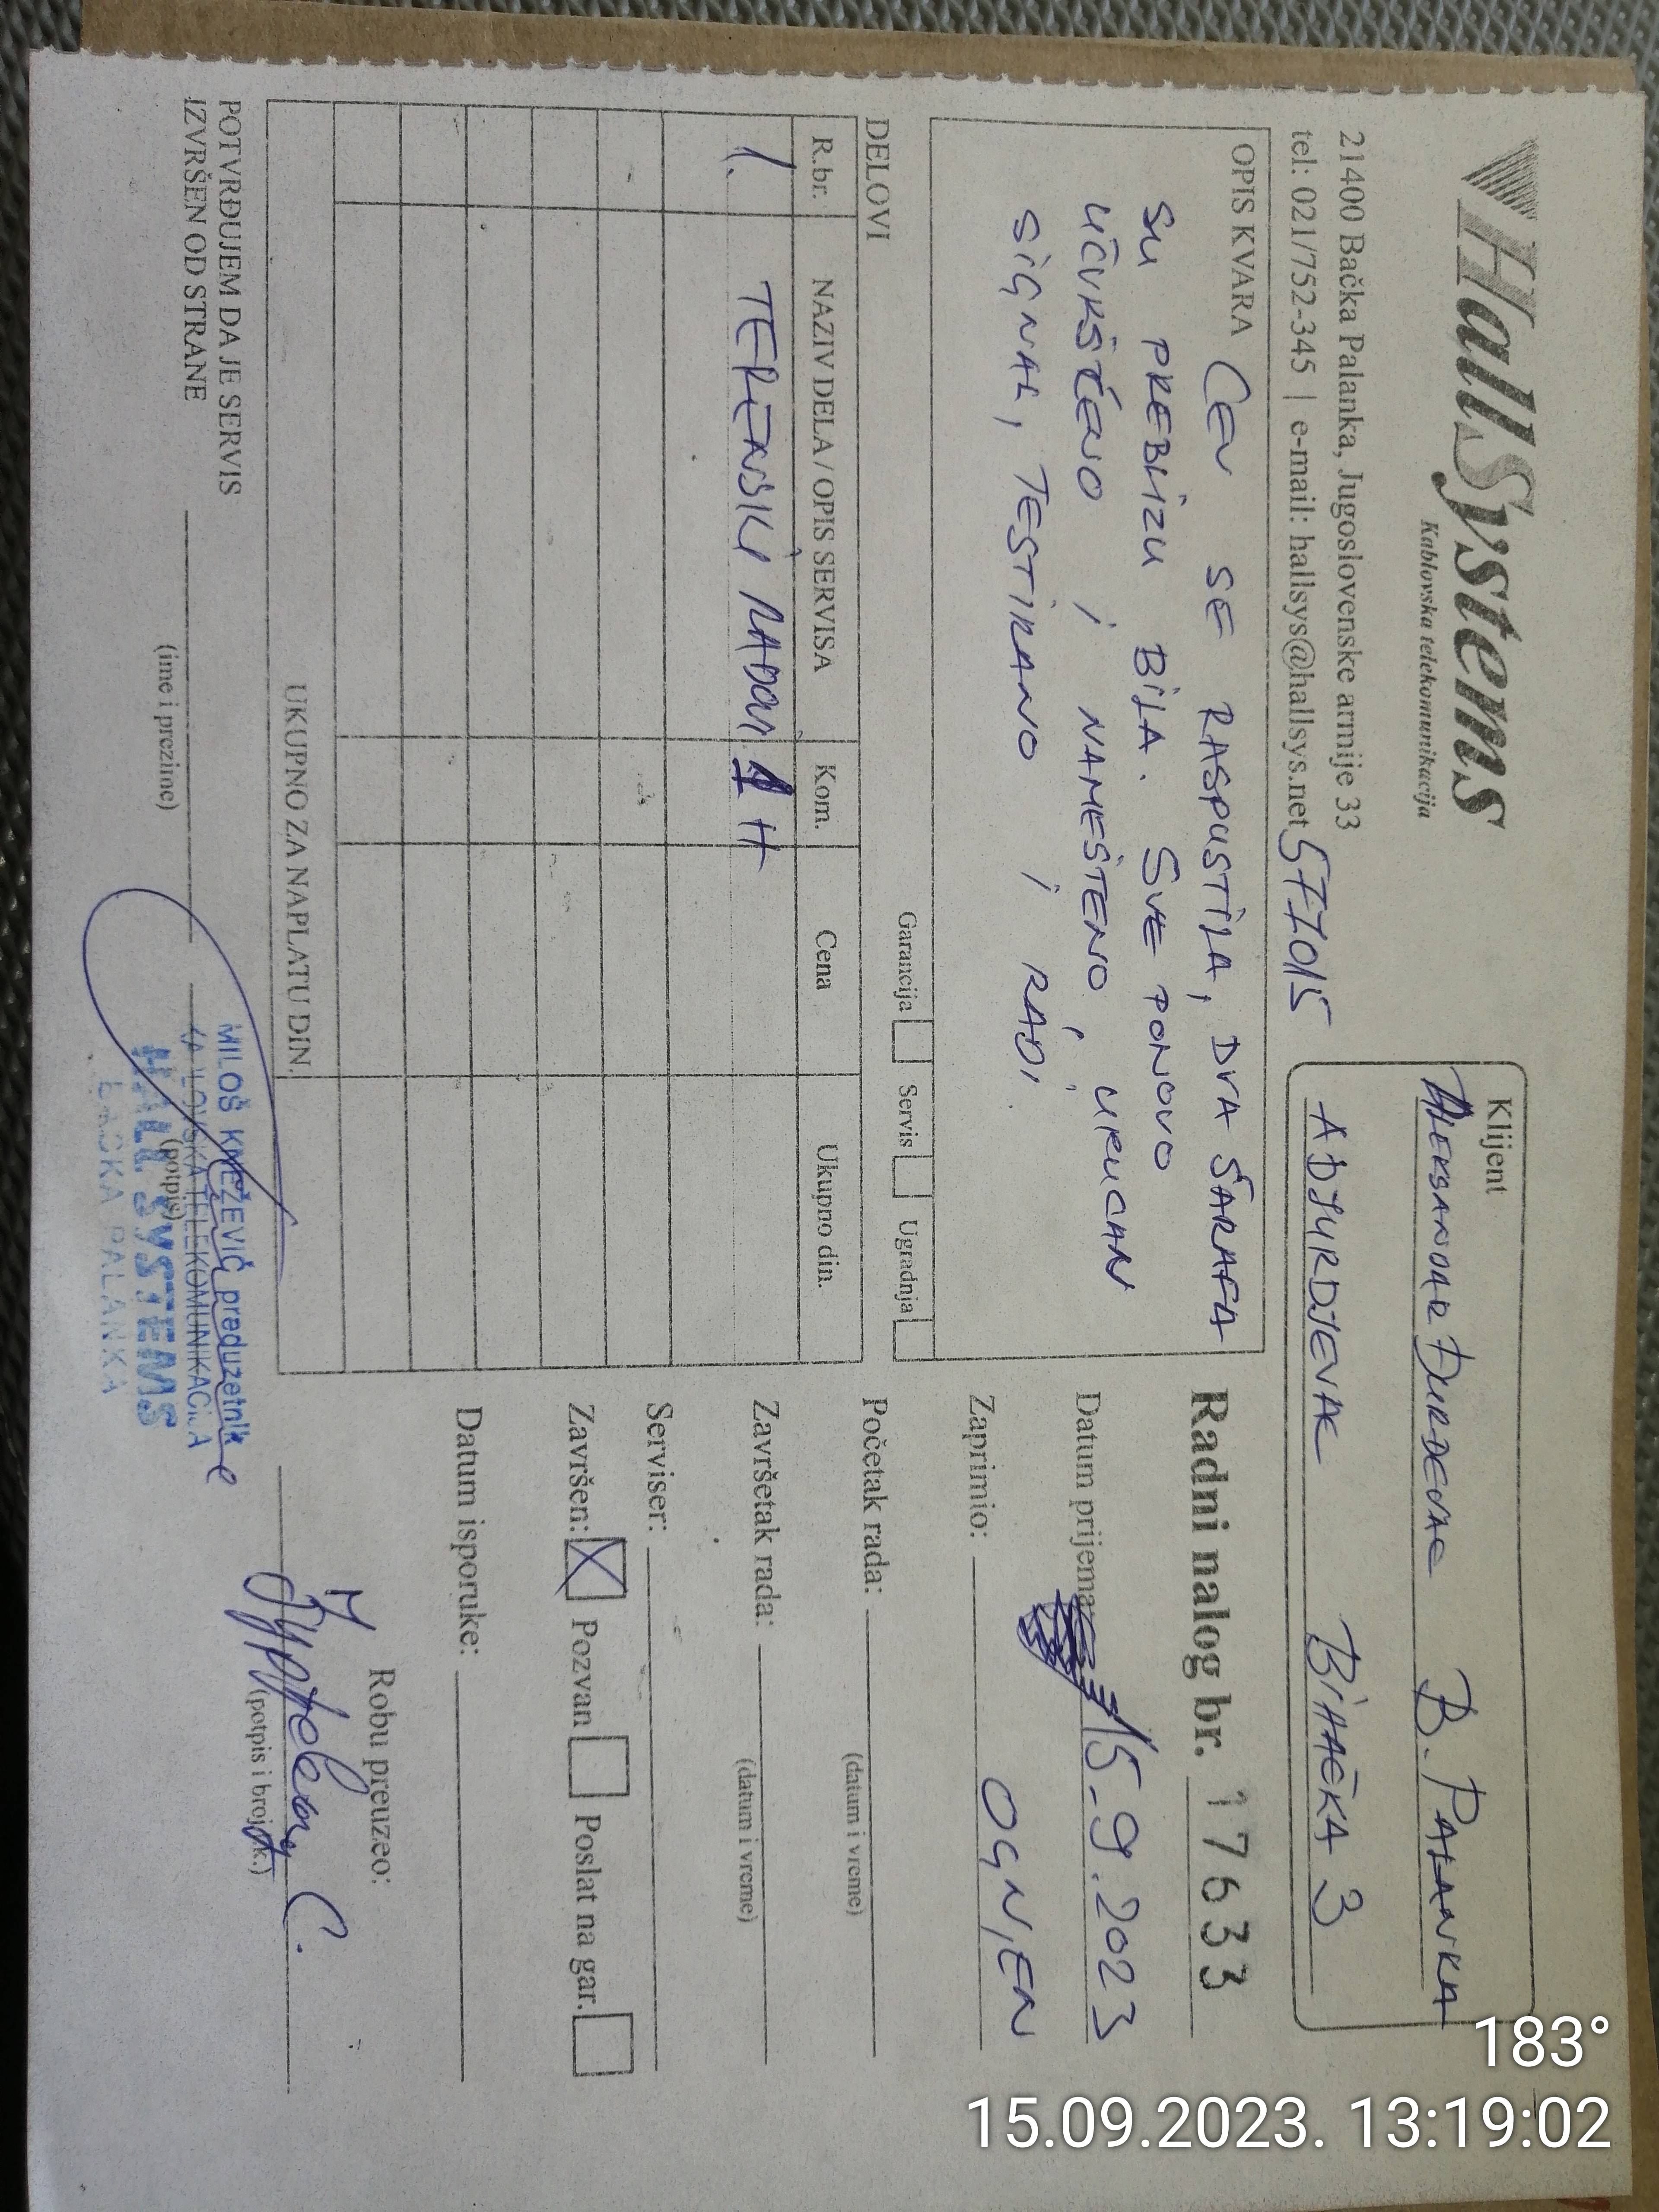 HallSystems
Kablovska telekomunikacija
21400 Bačka Palanka, Jugoslovenske armije 33
tel: 021/752-345 | e-mail: hallsys@hallsys.net
Klijent
ALEKSANDAR ĐURĐEVAC B. PALANKA
ADJURDJEVAC BIHAĆKA 3
OPIS KVARA CEV SE RASPUSTILA, DVA ŠARAFA
SU PREBLIZU BILA. SVE PONOVO
UČVRŠĆENO I NAMEŠTENO, URUČAN
SIGNAL, TESTIRANO I RADI.
Garancija Servis Ugradnja
DELOVI
R.br. NAZIV DELA / OPIS SERVISA Kom. Cena Ukupno din.
1. TERENSKI RADOVI 1 H
UKUPNO ZA NAPLATU DIN.
POTVRĐUJEM DA JE SERVIS
IZVRŠEN OD STRANE
(ime i prezime)
(potpis)
MILOŠ KNEŽEVIĆ preduzetnik
KABLOVSKA TELEKOMUNIKACIJA
HALL SYSTEMS
BAČKA PALANKA
Radni nalog br. 17633
Datum prijema: 15.9.2023
Zaprimio: OGNJEN
Početak rada:
(datum i vreme)
Završetak rada:
(datum i vreme)
Serviser:
Završen: Pozvan Poslat na gar.
Datum isporuke:
Robu preuzeo:
(potpis i broj l.k.)
183°
15.09.2023. 13:19:02